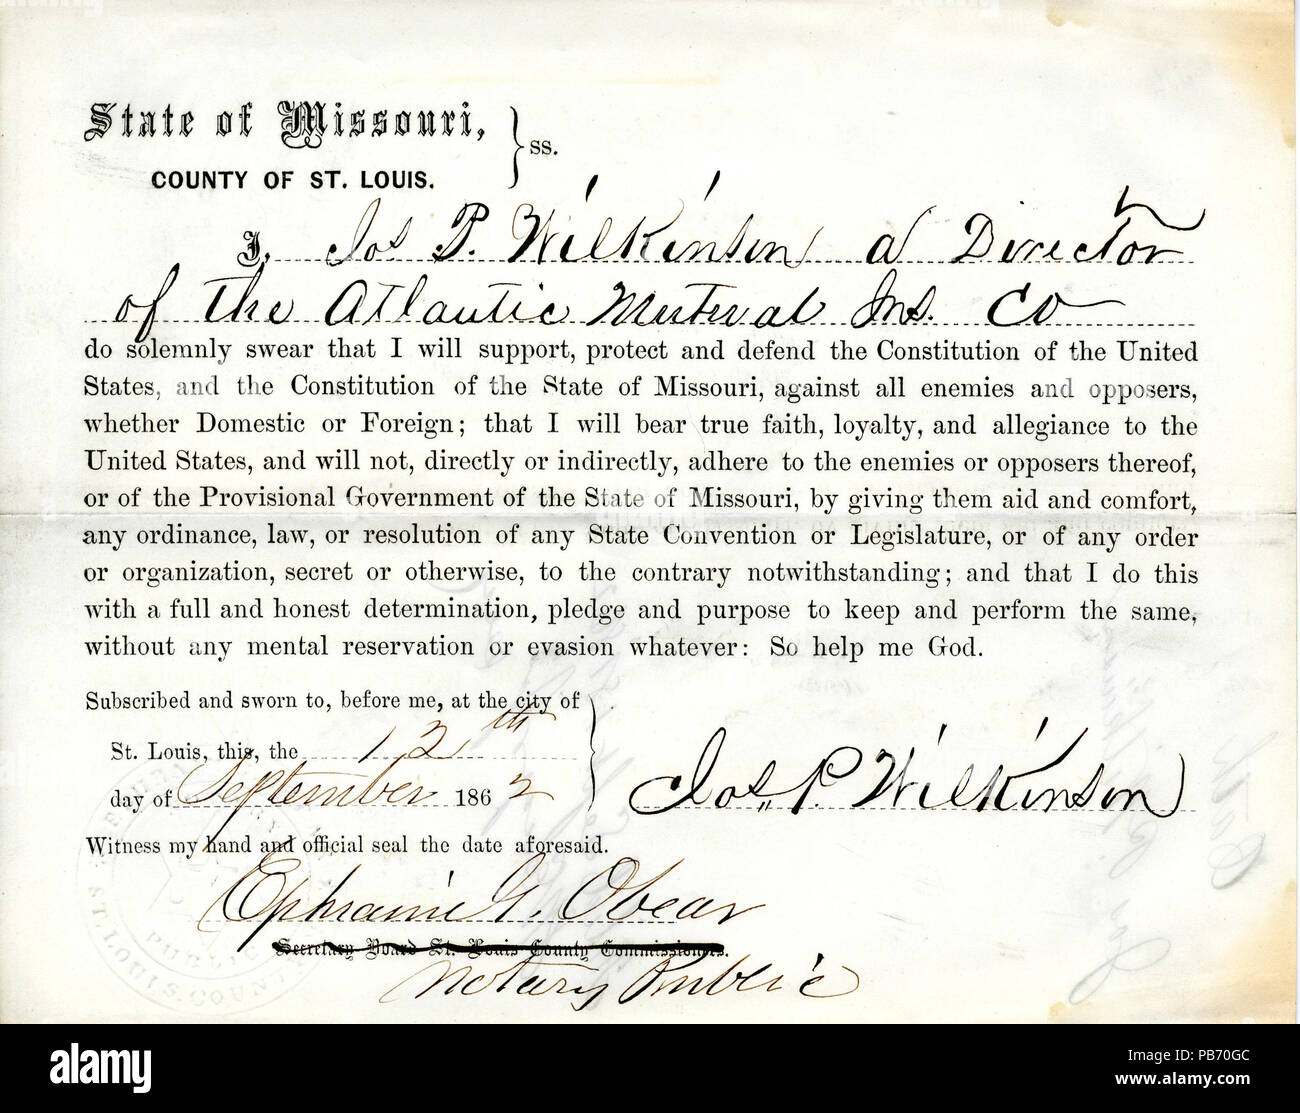 State of Missouri, } ss.
COUNTY OF ST. LOUIS.
I, Jos P. Wilkinson a Director
of the Atlantic Mutual Ins. Co
do solemnly swear that I will support, protect and defend the Constitution of the United
States, and the Constitution of the State of Missouri, against all enemies and opposers,
whether Domestic or Foreign; that I will bear true faith, loyalty, and allegiance to the
United States, and will not, directly or indirectly, adhere to the enemies or opposers thereof,
or of the Provisional Government of the State of Missouri, by giving them aid and comfort,
any ordinance, law, or resolution of any State Convention or Legislature, or of any order
or organization, secret or otherwise, to the contrary notwithstanding; and that I do this
with a full and honest determination, pledge and purpose to keep and perform the same,
without any mental reservation or evasion whatever: So help me God.
Subscribed and sworn to, before me, at the city of
St. Louis, this, the 12th
day of September 1862
Jos. P. Wilkinson
Witness my hand and official seal the date aforesaid.
Ephraim G. Obear
Secretary Board St. Louis County Commissioners.
Notary Public
PUBLIC
ST. LOUIS. COUNTY
alamy
Image ID: PB70GC
www.alamy.com